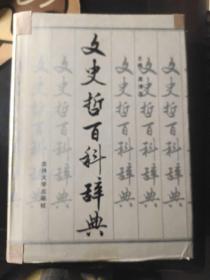 文史哲百科辞典
文史哲百科辞典
文史哲百科辞典
文史哲百科辞典
吉林大学出版社